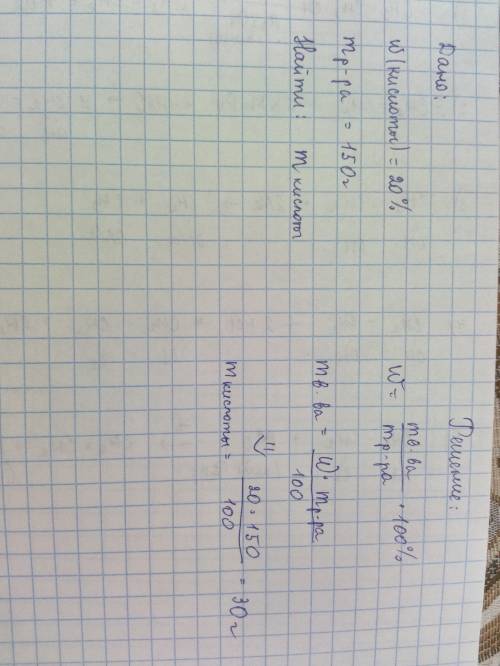 Дано:
W(кислоты) = 20%
mр-ра = 150г
Найти: m кислоты
Решение:
W = mв.ва / mр-ра · 100%
mв.ва = W · mр-ра / 100
mкислоты = 20 · 150 / 100 = 30г